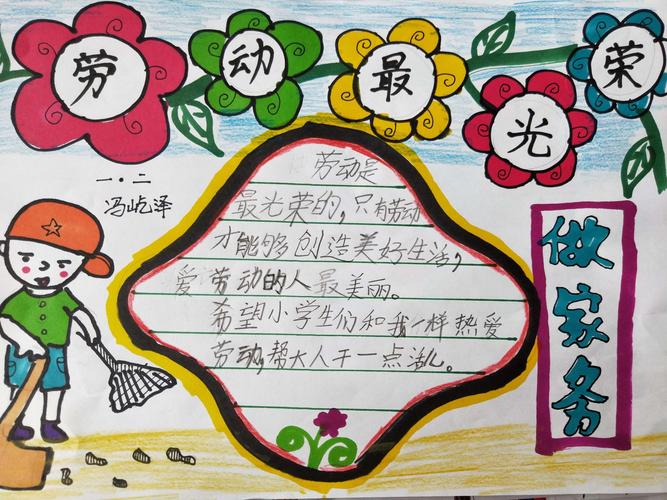 劳动最光荣
一·二
冯屹泽
劳动是
最光荣的，只有劳动
才能够创造美好生活，
爱劳动的人最美丽。
希望小学生们和我一样热爱
劳动，帮大人干一点活儿。
做家务